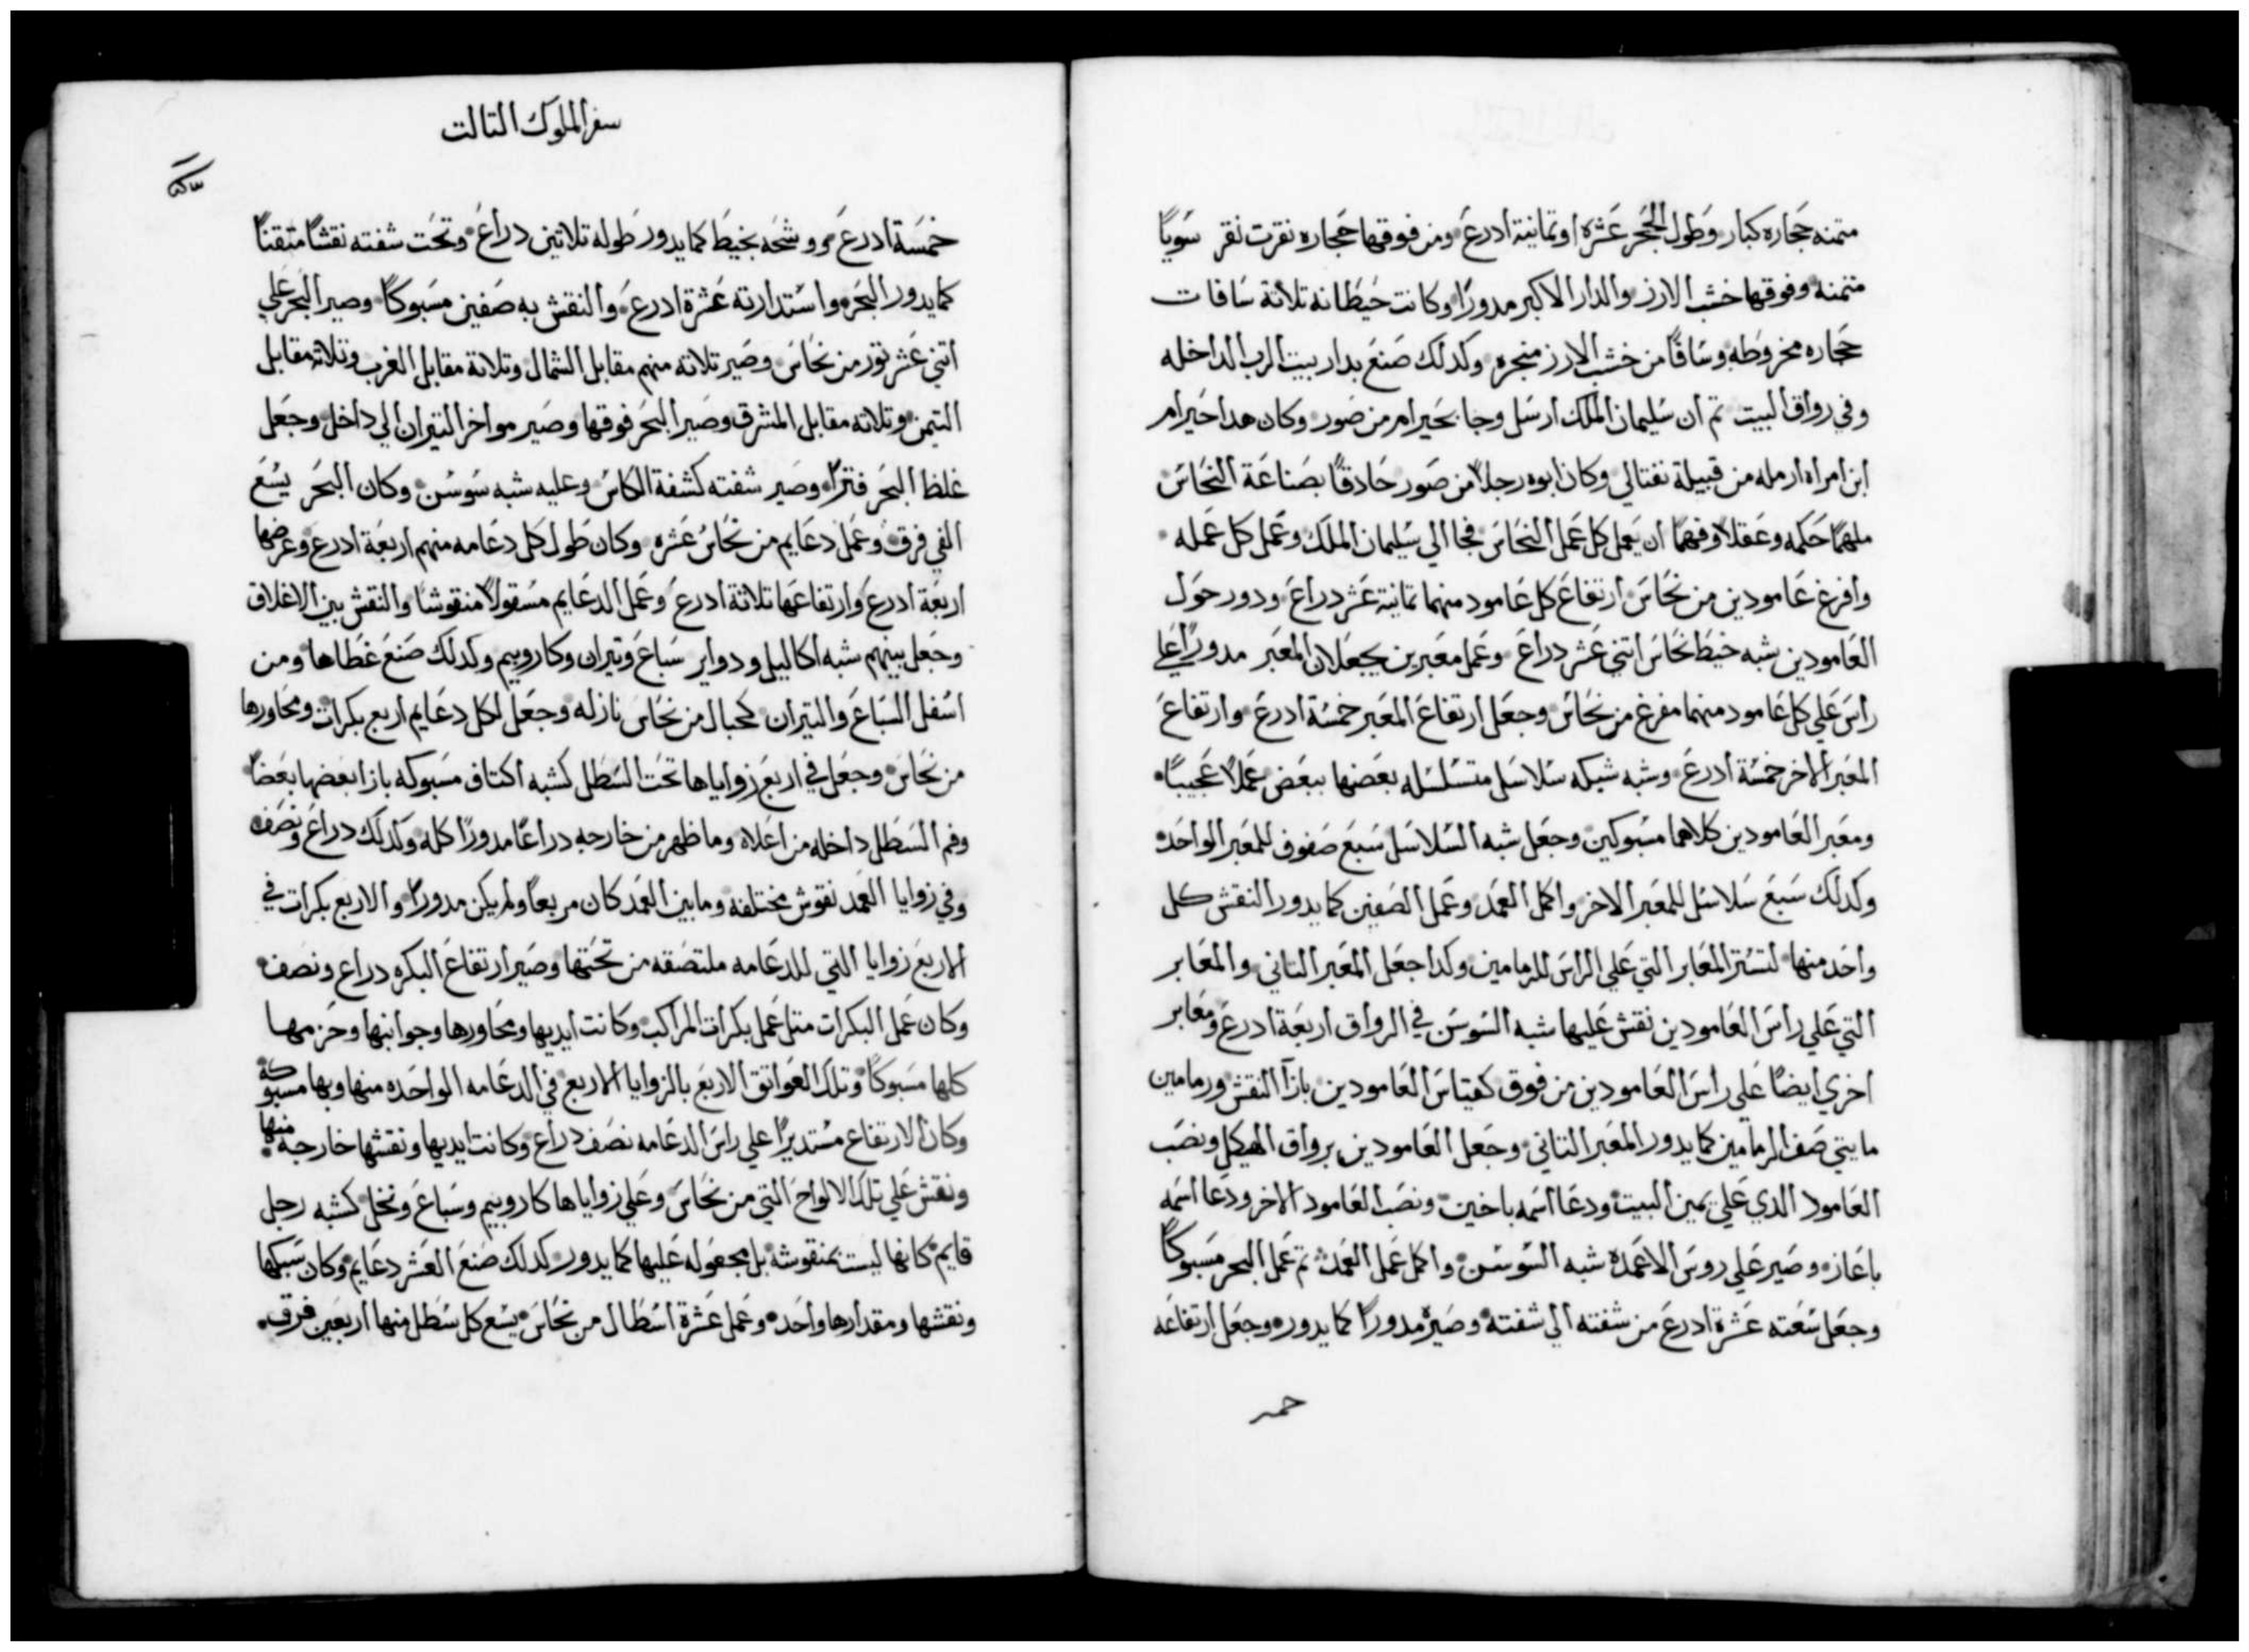 متمنه حجاره كبار وطول الحجر عشره اوتمانية ادرع ومن فوقها حجاره نقرت نقر سويًا
متمنه وفوقها خشب الارز والدار الاكبر مدورًا وكانت حيطانه تلاتة سافات
حجاره مخروطه وسافًا من خشب الارز منجره وكدلك صنع بدار بيت الرب الداخله
وفي رواق البيت تم ان سليمان الملك ارسل وجا بحيرام من صور وكان هدا حيرام
ابن امراه ارمله من قبيلة نفتالي وكان ابوه رجلاً من صور حادقًا بصناعة النحاس
ملهمًا حكمه وعقلاً وفهمًا ان يعمل كل عمل النحاس فجا الي سليمان الملك وعمل كل عمله
وافرغ عامودين من نحاس ارتفاع كل عامود منهما تمانية عشر دراع ودور حول
العامودين شبه خيط نحاس اتني عشر دراع وعمل معبرين يجعلان المعبر مدورًا علي
راس علي كل عامود منهما مفرغ من نحاس وجعل ارتفاع المعبر خمسة ادرع وارتفاع
المعبر الاخر خمسة ادرع وشبه شبكه سلاسل متسلسله بعضها ببعض عملاً عجيبًا
ومعبر العامودين كلاهما مسبوكين وجعل شبه السلاسل سبع صفوف للمعبر الواحد
وكدلك سبع سلاسل للمعبر الاخر واكمل العمد وعمل الصفين كما يدور النقش كل
واحد منها لتستر المعابر التي علي الراس للرمامين وكدا جعل المعبر التاني والمعابر
التي علي راس العامودين نقش عليها شبه السوسن في الرواق اربعة ادرع ومعابر
اخري ايضًا علي راس العامودين من فوق كقياس العامودين بازآ النقش ورمامين
مايتي صف الرمامين كما يدور المعبر التاني وجعل العامودين برواق الهيكل ونصب
العامود الدي علي يمين البيت ودعا اسمه ياخين ونصب العامود الاخر ودعا اسمه
باعاز وصير علي روس الاعمده شبه السوسن واكمل عمل العمد تم عمل البحر مسبوكًا
وجعل سعته عشرة ادرع من شفته الي شفته وصيره مدورًا كما يدور وجعل ارتفاعه
سفر الملوك التالت
خمسة ادرع ووشحه بخيط كما يدور طوله تلاتين دراع وتحت شفته نقشًا متقنًا
كما يدور البحر واستدارته عشرة ادرع والنقش به صفين مسبوكًا وصير البحر علي
اتني عشر تور من نحاس وصير تلاته منهم مقابل الشمال وتلاتة مقابل الغرب وتلاته مقابل
التيمن وتلاته مقابل المشرق وصير البحر فوقها وصير مواخر التيران الي داخل وجعل
غلظ البحر فترًا وصير شفته كشفة الكاس وعليه شبه سوسن وكان البحر يسع
الفي فرق وعمل دعايم من نحاس عشره وكان طول كل دعامه منهم اربعة ادرع وعرضها
اربعة ادرع وارتفاعها تلاتة ادرع وعمل الدعايم مسقولاً منقوشا والنقش بين الاغلاق
وجعل بينهم شبه اكاليل ودواير سباع وتيران وكاروبيم وكدلك صنع غطاها ومن
اسفل السباع والتيران كحبال من نحاس نازله وجعل لكل دعايم اربع بكرات ومحاورها
من نحاس وجعل في اربع زواياها تحت السطل كشبه اكتاف مسبوكه بازا بعضها بعضًا
وفم السطل داخله من اعلاه وما ظهر من خارجه دراعًا مدورًا كله وكدلك دراع ونصف
وفي زوايا العمد نقوش مختلفه ومابين العمد كان مربعًا ولم يكن مدورًا والاربع بكرات في
الاربع زوايا التي للدعامه ملتصقه من تحتها وصير ارتفاع البكره دراع ونصف
وكان عمل البكرات متل عمل بكرات المراكب وكانت ايديها ومحاورها وجوانبها وحزمها
كلها مسبوكًا وتلك العواتق الاربع بالزوايا الاربع في الدعامه الواحده منها وبها مسبوكة
وكان الارتفاع مستديرًا علي راس الدعامه نصف دراع وكانت ايديها ونقشها خارجه منها
ونقش علي تلك الالواح التي من نحاس وعلي زواياها كاروبيم وسباع ونخل كشبه رجل
قايم كانها ليست بمنقوشه بل مجعوله عليها كما يدور كدلك صنع العشر دعايم وكان سبكها
ونقشها ومقدارها واحد وعمل عشرة اسطال من نحاس يسع كل سطل منها اربعين فرق